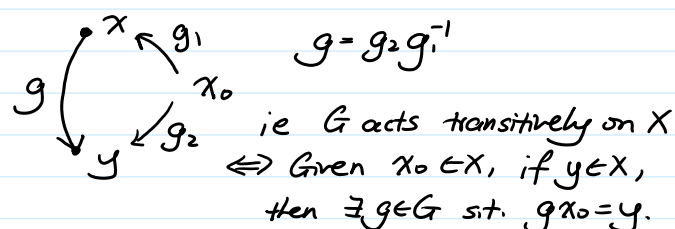 x
g₁
g = g₂g₁⁻¹
g
x₀
g₂
ie G acts transitively on X
y
⇔ Given x₀ ∈ X, if y ∈ X,
then ∃ g ∈ G s.t. gx₀ = y.